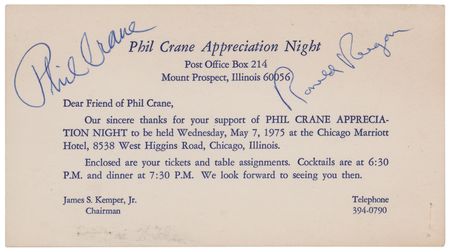 Phil Crane
Phil Crane Appreciation Night
Ronald Reagan
Post Office Box 214
Mount Prospect, Illinois 60056
Dear Friend of Phil Crane,
Our sincere thanks for your support of PHIL CRANE APPRECIA-
TION NIGHT to be held Wednesday, May 7, 1975 at the Chicago Marriott
Hotel, 8538 West Higgins Road, Chicago, Illinois.
Enclosed are your tickets and table assignments. Cocktails are at 6:30
P.M. and dinner at 7:30 P.M. We look forward to seeing you then.
James S. Kemper, Jr.
Chairman
Telephone
394-0790